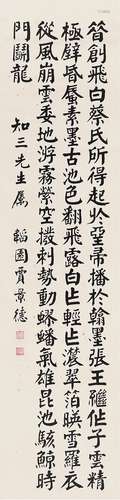 創飛白蔡氏所得起於堊帚播於翰墨張王繼作子雲精
極壁昏蜃素墨古池色翻飛露白乍輕乍濃翠箔映雪羅衣
從風崩雲委地游霧縈空撥刺勢動蟉蟠氣雄昆池駭鯨時
門鬭龍
知三先生属
韜園賈景德